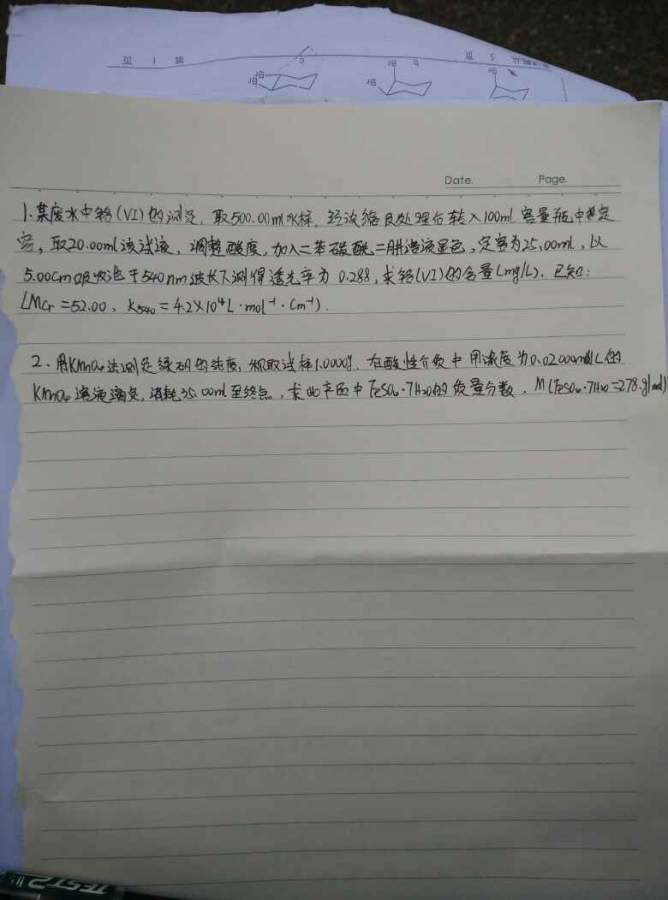 III 1
III 5
Date. Page.
1.某废水中铬(VI)的测定,取500.00ml水样,经浓缩及处理后转入100ml容量瓶中并定
容,取20.00ml该试液,调整酸度,加入二苯碳酰二肼溶液显色,定容为25.00ml,以
5.00cm吸收池于540nm波长下测得透光率为0.288,求铬(VI)的含量(mg/L).已知:
(MCr=52.00, K540=4.2×10⁴L·mol⁻¹·cm⁻¹).
2.用KMnO₄法测定绿矾的纯度,称取试样1.0000g,在酸性介质中用浓度为0.02000mol/L的
KMnO₄溶液滴定,消耗35.00ml至终点,求此产品中FeSO₄·7H₂O的质量分数,M(FeSO₄·7H₂O=278.g/mol)
TEST2